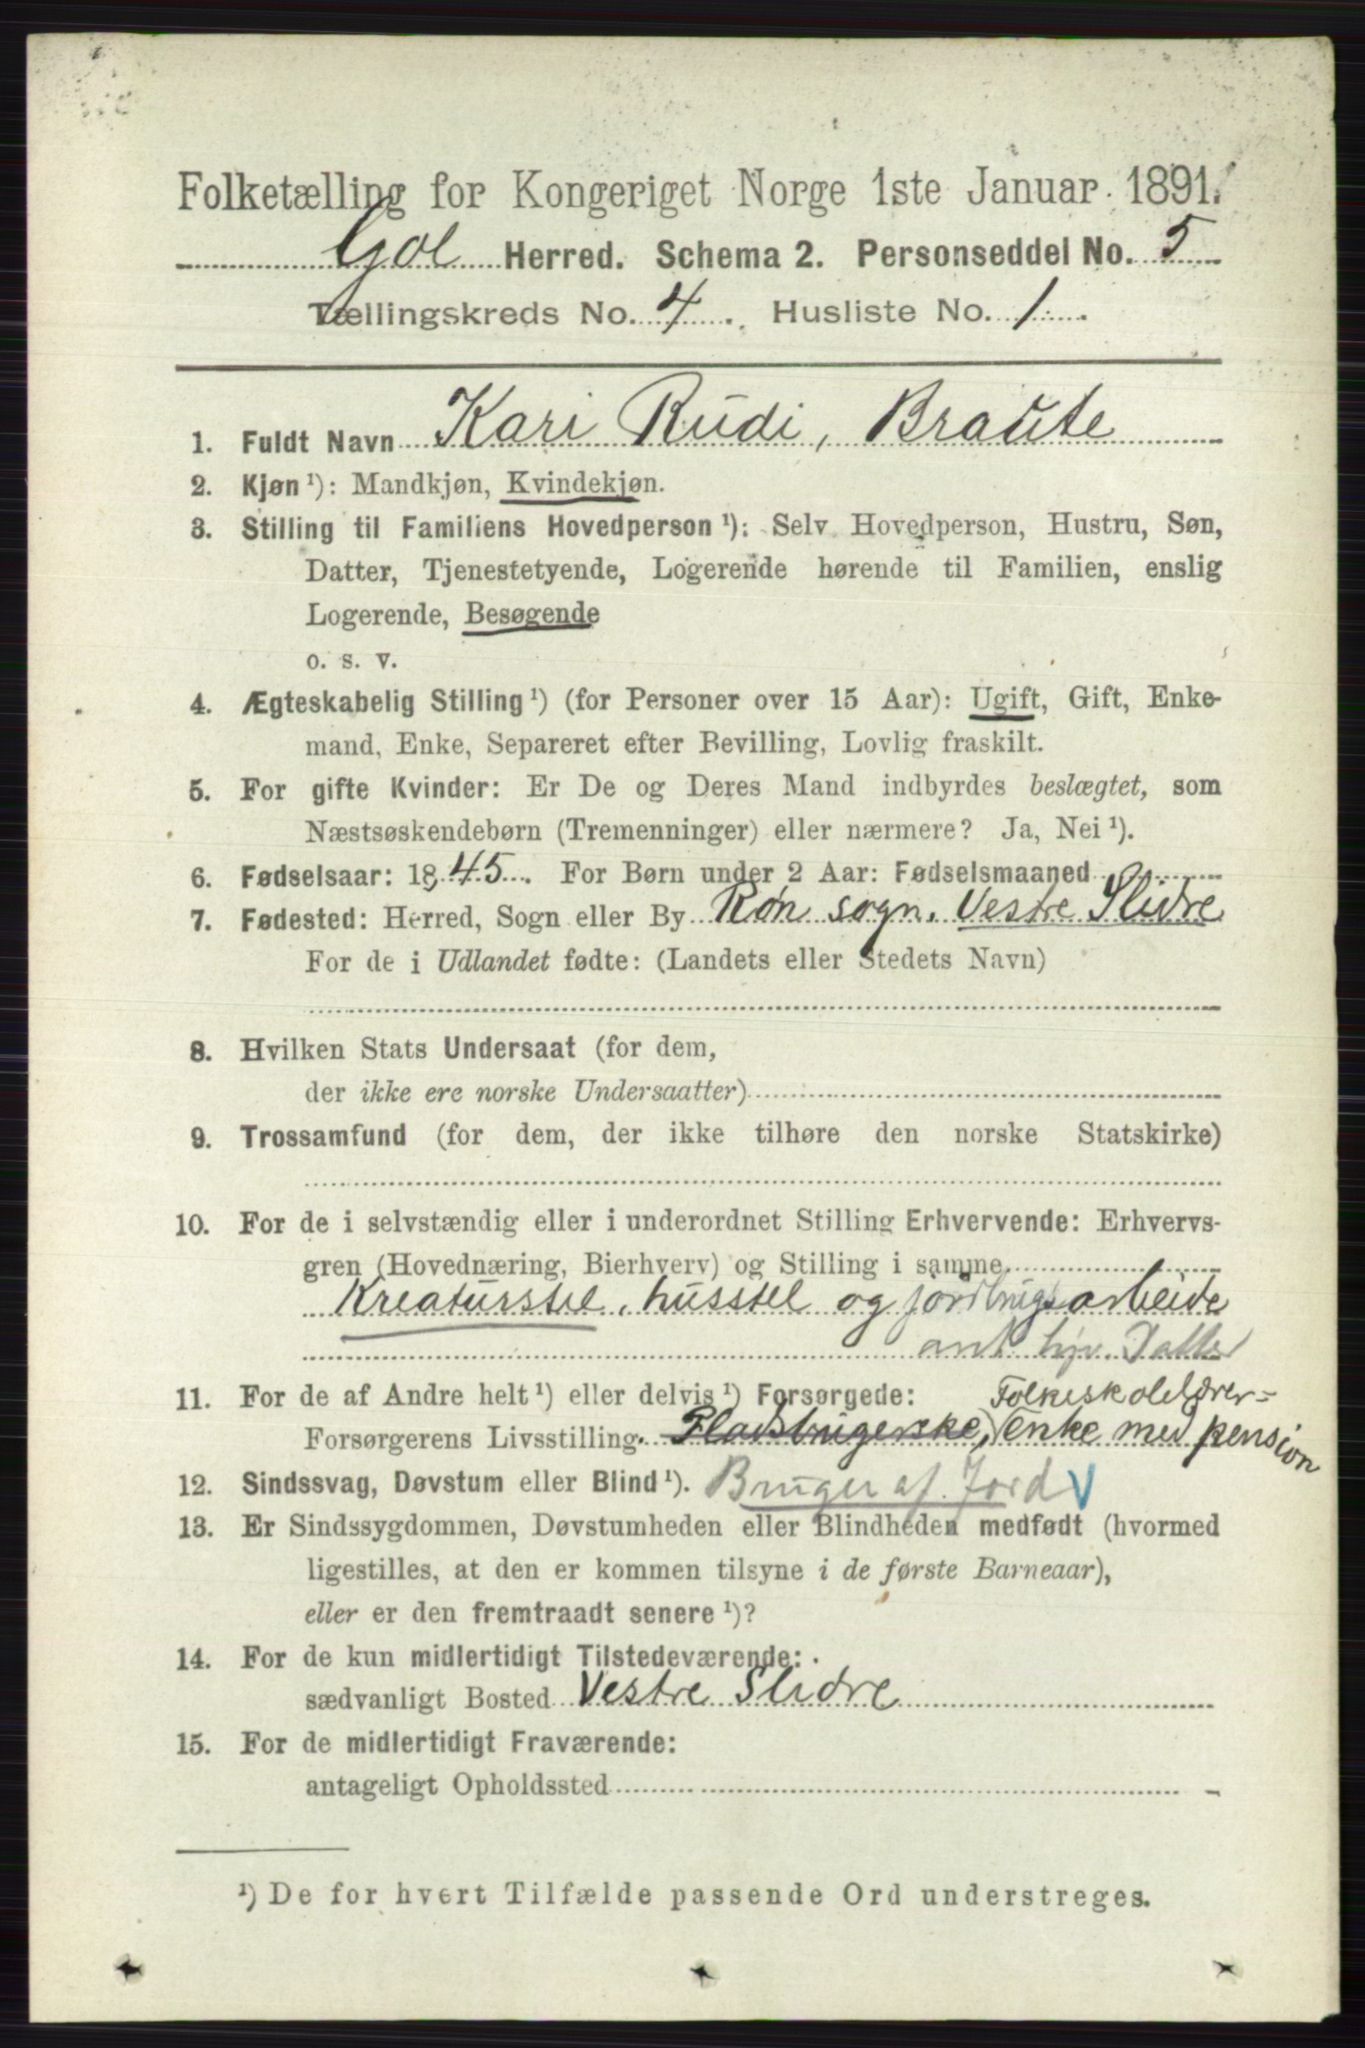 Folketælling for Kongeriget Norge 1ste Januar 1891.
Gol Herred. Schema 2. Personseddel No. 5
Tællingskreds No. 4. Husliste No. 1.
1. Fuldt Navn Kari Rudi, Braute
2. Kjøn ¹): Mandkjøn, Kvindekjøn.
3. Stilling til Familiens Hovedperson ¹): Selv Hovedperson, Hustru, Søn,
Datter, Tjenestetyende, Logerende hørende til Familien, enslig
Logerende, Besøgende
o. s. v.
4. Ægteskabelig Stilling ¹) (for Personer over 15 Aar): Ugift, Gift, Enke-
mand, Enke, Separeret efter Bevilling, Lovlig fraskilt.
5. For gifte Kvinder: Er De og Deres Mand indbyrdes beslægtet, som
Næstsøskendebørn (Tremenninger) eller nærmere? Ja, Nei ¹).
6. Fødselsaar: 1845. For Børn under 2 Aar: Fødselsmaaned
7. Fødested: Herred, Sogn eller By Røn sogn. Vestre Slidre
For de i Udlandet fødte: (Landets eller Stedets Navn)
8. Hvilken Stats Undersaat (for dem,
der ikke ere norske Undersaatter)
9. Trossamfund (for dem, der ikke tilhøre den norske Statskirke)
10. For de i selvstændig eller i underordnet Stilling Erhvervende: Erhvervs-
gren (Hovednæring, Bierhverv) og Stilling i samme
Kreaturstel, husstel og jordbrugsarbeide
ant. hjv. Datter
11. For de af Andre helt ¹) eller delvis ¹) Forsørgede: Folkeskolelærer-
Forsørgerens Livsstilling. Pladsbrugerske, enke med pension
12. Sindssvag, Døvstum eller Blind ¹). Bruger af Jord V
13. Er Sindssygdommen, Døvstumheden eller Blindheden medfødt (hvormed
ligestilles, at den er kommen tilsyne i de første Barneaar),
eller er den fremtraadt senere ¹)?
14. For de kun midlertidigt Tilstedeværende:
sædvanligt Bosted Vestre Slidre
15. For de midlertidigt Fraværende:
antageligt Opholdssted
¹) De for hvert Tilfælde passende Ord understreges.